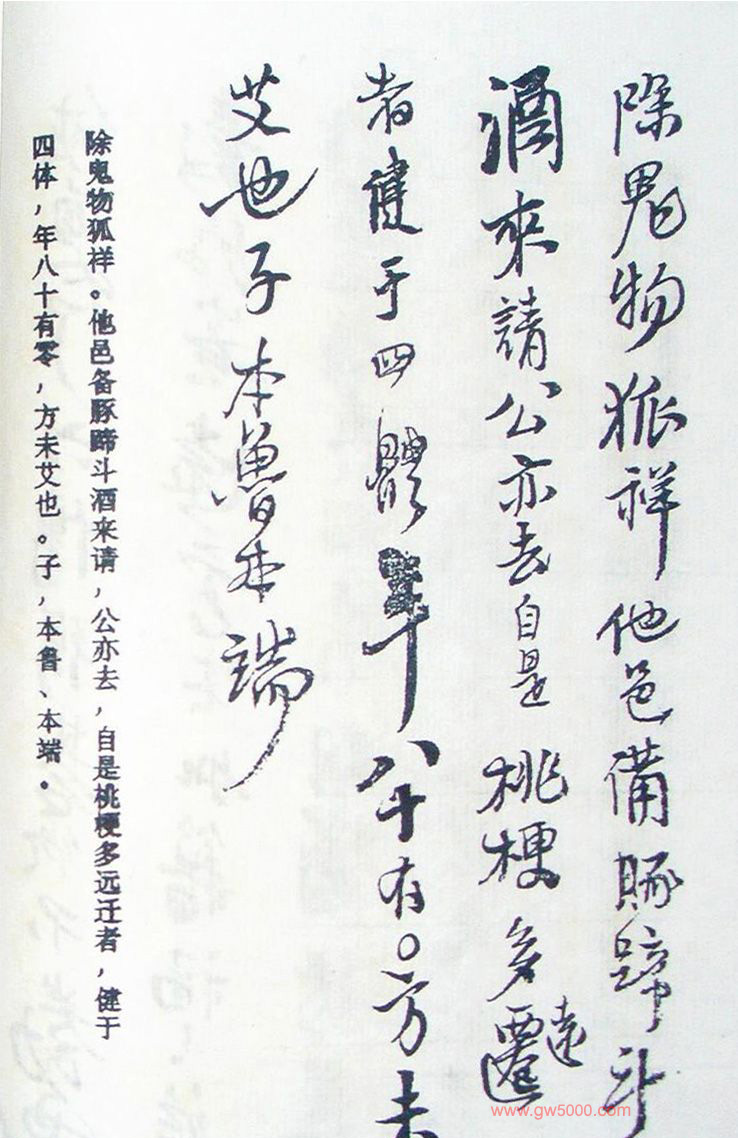 除鬼物狐祥他邑備豚蹄斗
酒來請公亦去自是桃梗多遷遠
者健于四體年八十有〇方未
艾也子本魯本端
除鬼物狐样。他邑备豚蹄斗酒来请，公亦去，自是桃梗多远迁者，健于
四体，年八十有零，方未艾也。子，本鲁、本端。
www.gw5000.com